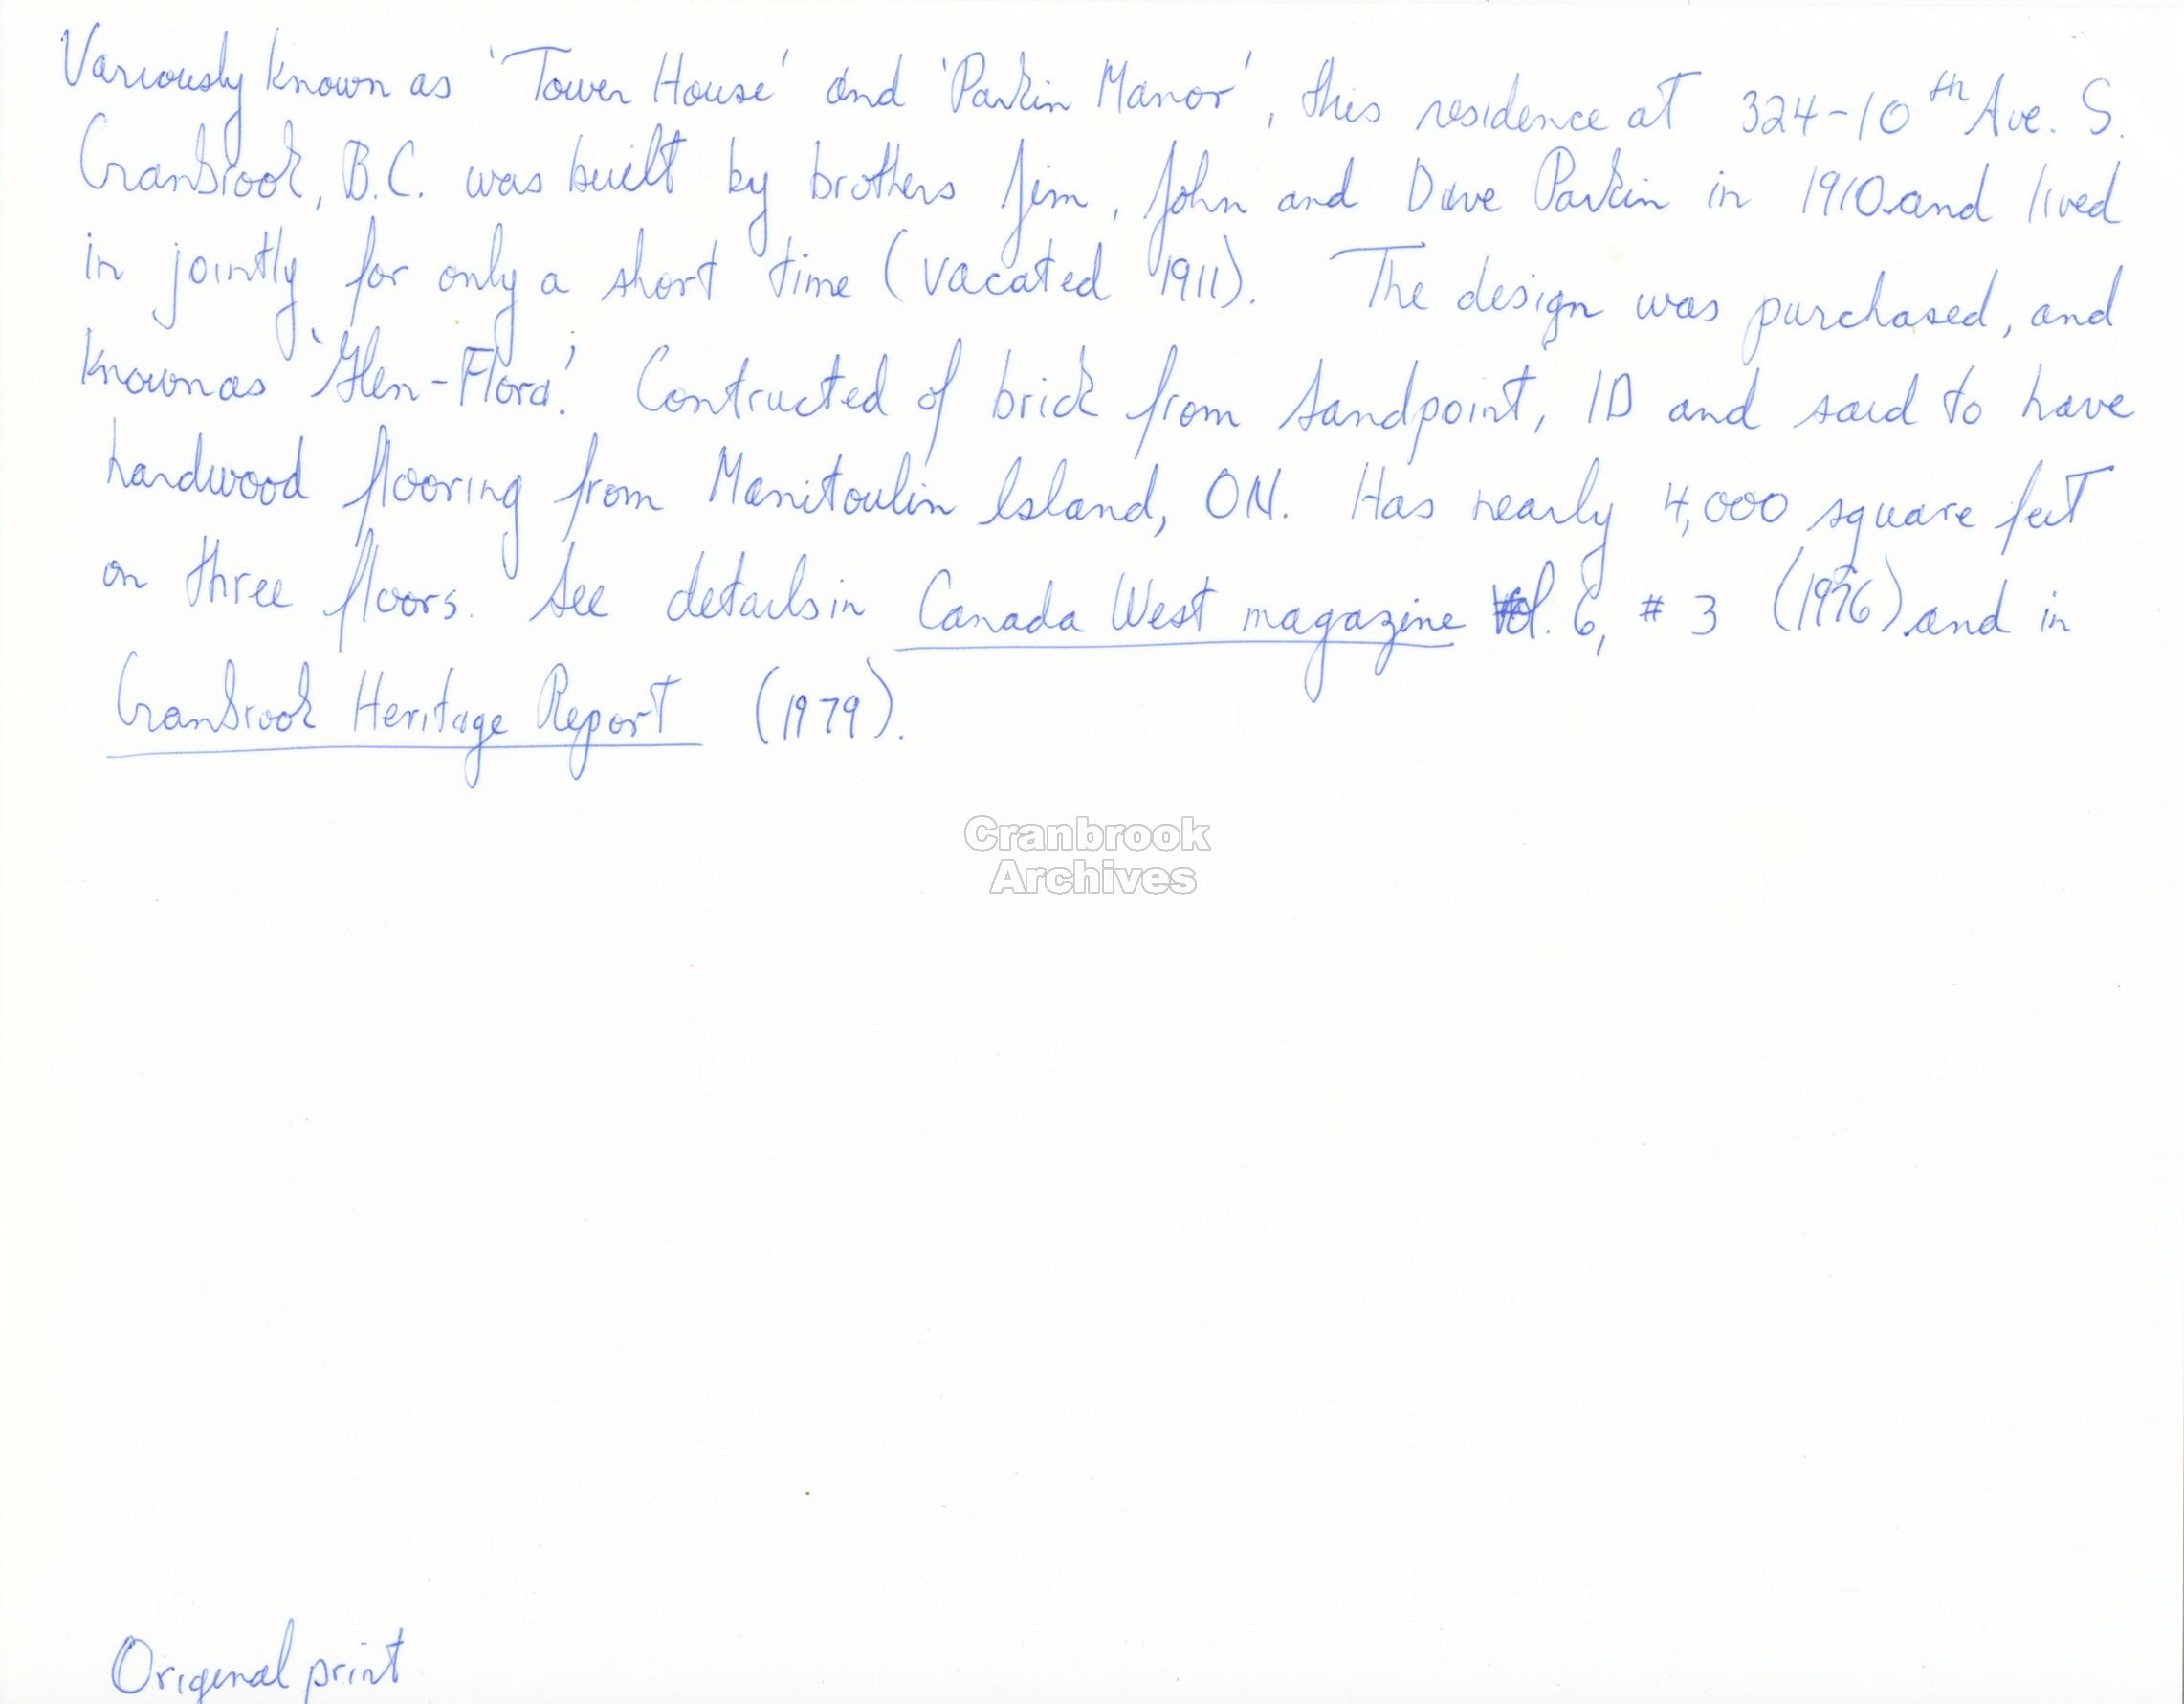 Variously known as 'Tower House' and 'Parkin Manor', this residence at 324-10th Ave. S.
Cranbrook, B.C. was built by brothers Jim, John and Dave Parkin in 1910 and lived
in jointly for only a short time (vacated 1911). The design was purchased, and
known as 'Glen-Flora'. Contructed of brick from Sandpoint, ID and said to have
hardwood flooring from Manitoulin Island, ON. Has nearly 4,000 square feet
on three floors. See details in Canada West magazine Vol. 6, # 3 (1976) and in
Cranbrook Heritage Report (1979).
Cranbrook
Archives
Original print